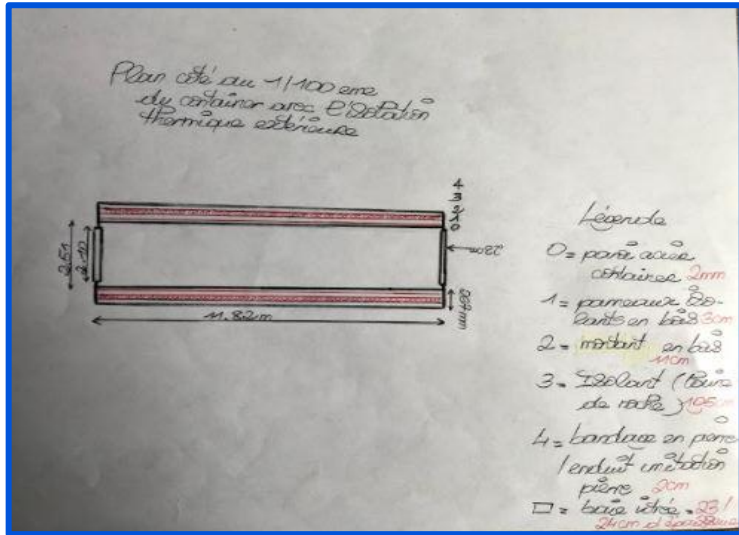 Plan coté au 1/100 eme
du container avec l'isolation
thermique extérieure
4
3
2
1
0
2.51
2.10
22cm
11.82m
267mm
Légende
0 = paroi acier
container 2mm
1 = panneaux iso-
lants en bois 3cm
2 = montant en bois
11cm
3 = Isolant (laine
de roche)
4 = bardage en pierre
/ enduit imitation
pierre 2cm
□ = baie vitrée = 23/
24cm d'épaisseur